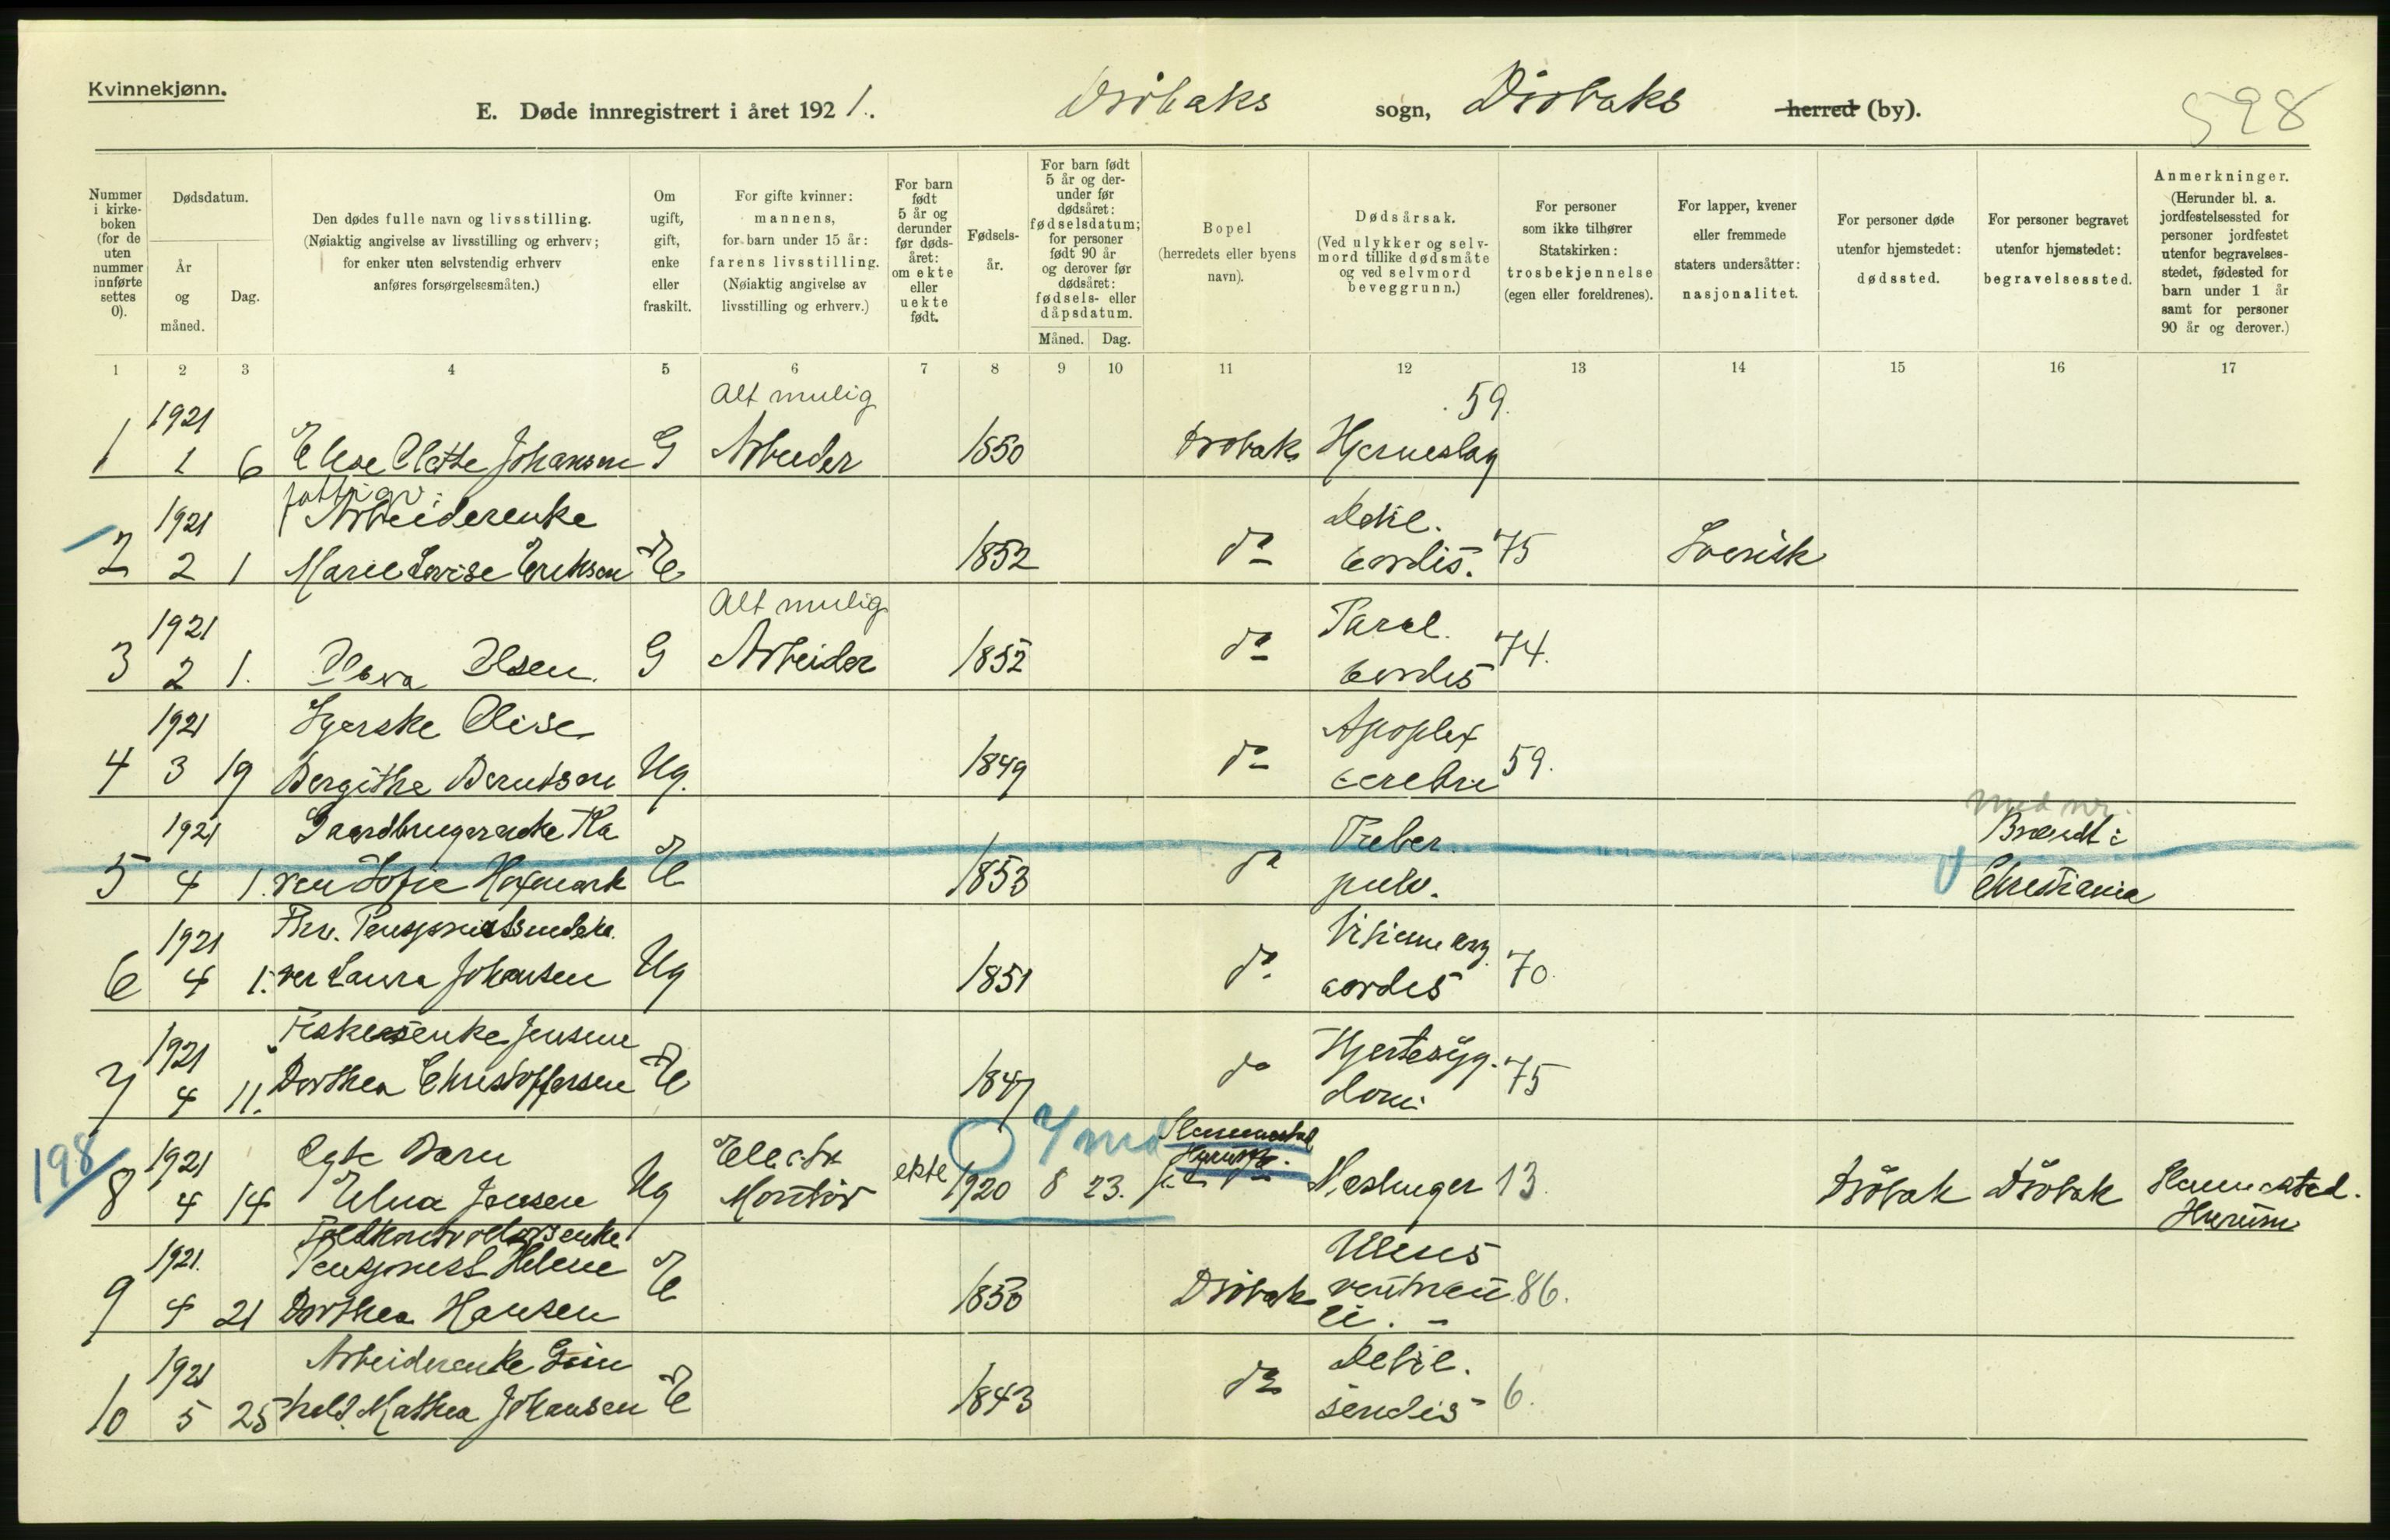 Kvinnekjønn.
E. Døde innregistrert i året 1921. Drøbaks sogn, Drøbaks herred (by).
598
Nummer i kirkeboken (for de uten nummer innførte settes 0).
Dødsdatum.
År og måned.
Dag.
Den dødes fulle navn og livsstilling. (Nøiaktig angivelse av livsstilling og erhverv; for enker uten selvstendig erhverv anføres forsørgelsesmåten.)
Om ugift, gift, enke eller fraskilt.
For gifte kvinner: mannens, for barn under 15 år: farens livsstilling. (Nøiaktig angivelse av livsstilling og erhverv.)
For barn født 5 år og derunder før dødsåret: om ekte eller uekte født.
Fødselsår.
For barn født 5 år og derunder før dødsåret: fødselsdatum; for personer født 90 år og derover før dødsåret: fødsels- eller dåpsdatum.
Måned. Dag.
Bopel (herredets eller byens navn).
Dødsårsak. (Ved ulykker og selvmord tillike dødsmåte og ved selvmord beveggrunn.)
For personer som ikke tilhører Statskirken: trosbekjennelse (egen eller foreldrenes).
For lapper, kvener eller fremmede staters undersåtter: nasjonalitet.
For personer døde utenfor hjemstedet: dødssted.
For personer begravet utenfor hjemstedet: begravelsessted.
Anmerkninger. (Herunder bl. a. jordfestelsessted for personer jordfestet utenfor begravelsesstedet, fødested for barn under 1 år samt for personer 90 år og derover.)
1 2 3 4 5 6 7 8 9 10 11 12 13 14 15 16 17
1921 Alt mulig 59.
1 1 6 Elise Olette Johansen G Arbeider 1850 Drøbak Hjerneslag
fattigv.
1921 Arbeiderenke Debil.
2 2 1 Marie Lovise Eriksen E 1852 do cordis. 75 Svensk
1921 Alt mulig Paral.
3 2 1. Olava Olsen G Arbeider 1852 do cordis 74.
1921 Syerske Elise Apoplex
4 3 19 Bergithe Berntsen Ug. 1849 do cerebri 59.
med nr.
1921 Gaardbrugerenke Ha Tuber. Brændt i
5 4 1. ven Sofie E 1853 do pulm. Christiania
1921 Fhv. Vitium org.
6 4 1. ver Laura Johansen Ug 1851 do cordis 70.
1921 Fiskerenke Jensine Hjertesyg-
7 4 11. Dorthea Christoffersen E 1847 do dom 75
198 1921 Egte Barn Electr. 7 md Slemmestad Hurum.
8 4 14 Elna Jensen Ug Montør ekte 1920 8 23. Meslinger 13. Drøbak Drøbak Slemmestad.
Hurum
Toldkontrollørsenke
1921. Pensjonist Helene Ulcus
9 4 21 Dorthea Hansen E 1850 Drøbak ventricu 86.
li. -
1921 Arbeiderenke Gun Debil.
10 5 25 hild. Mathea Johansen E 1843 do senilis 6.